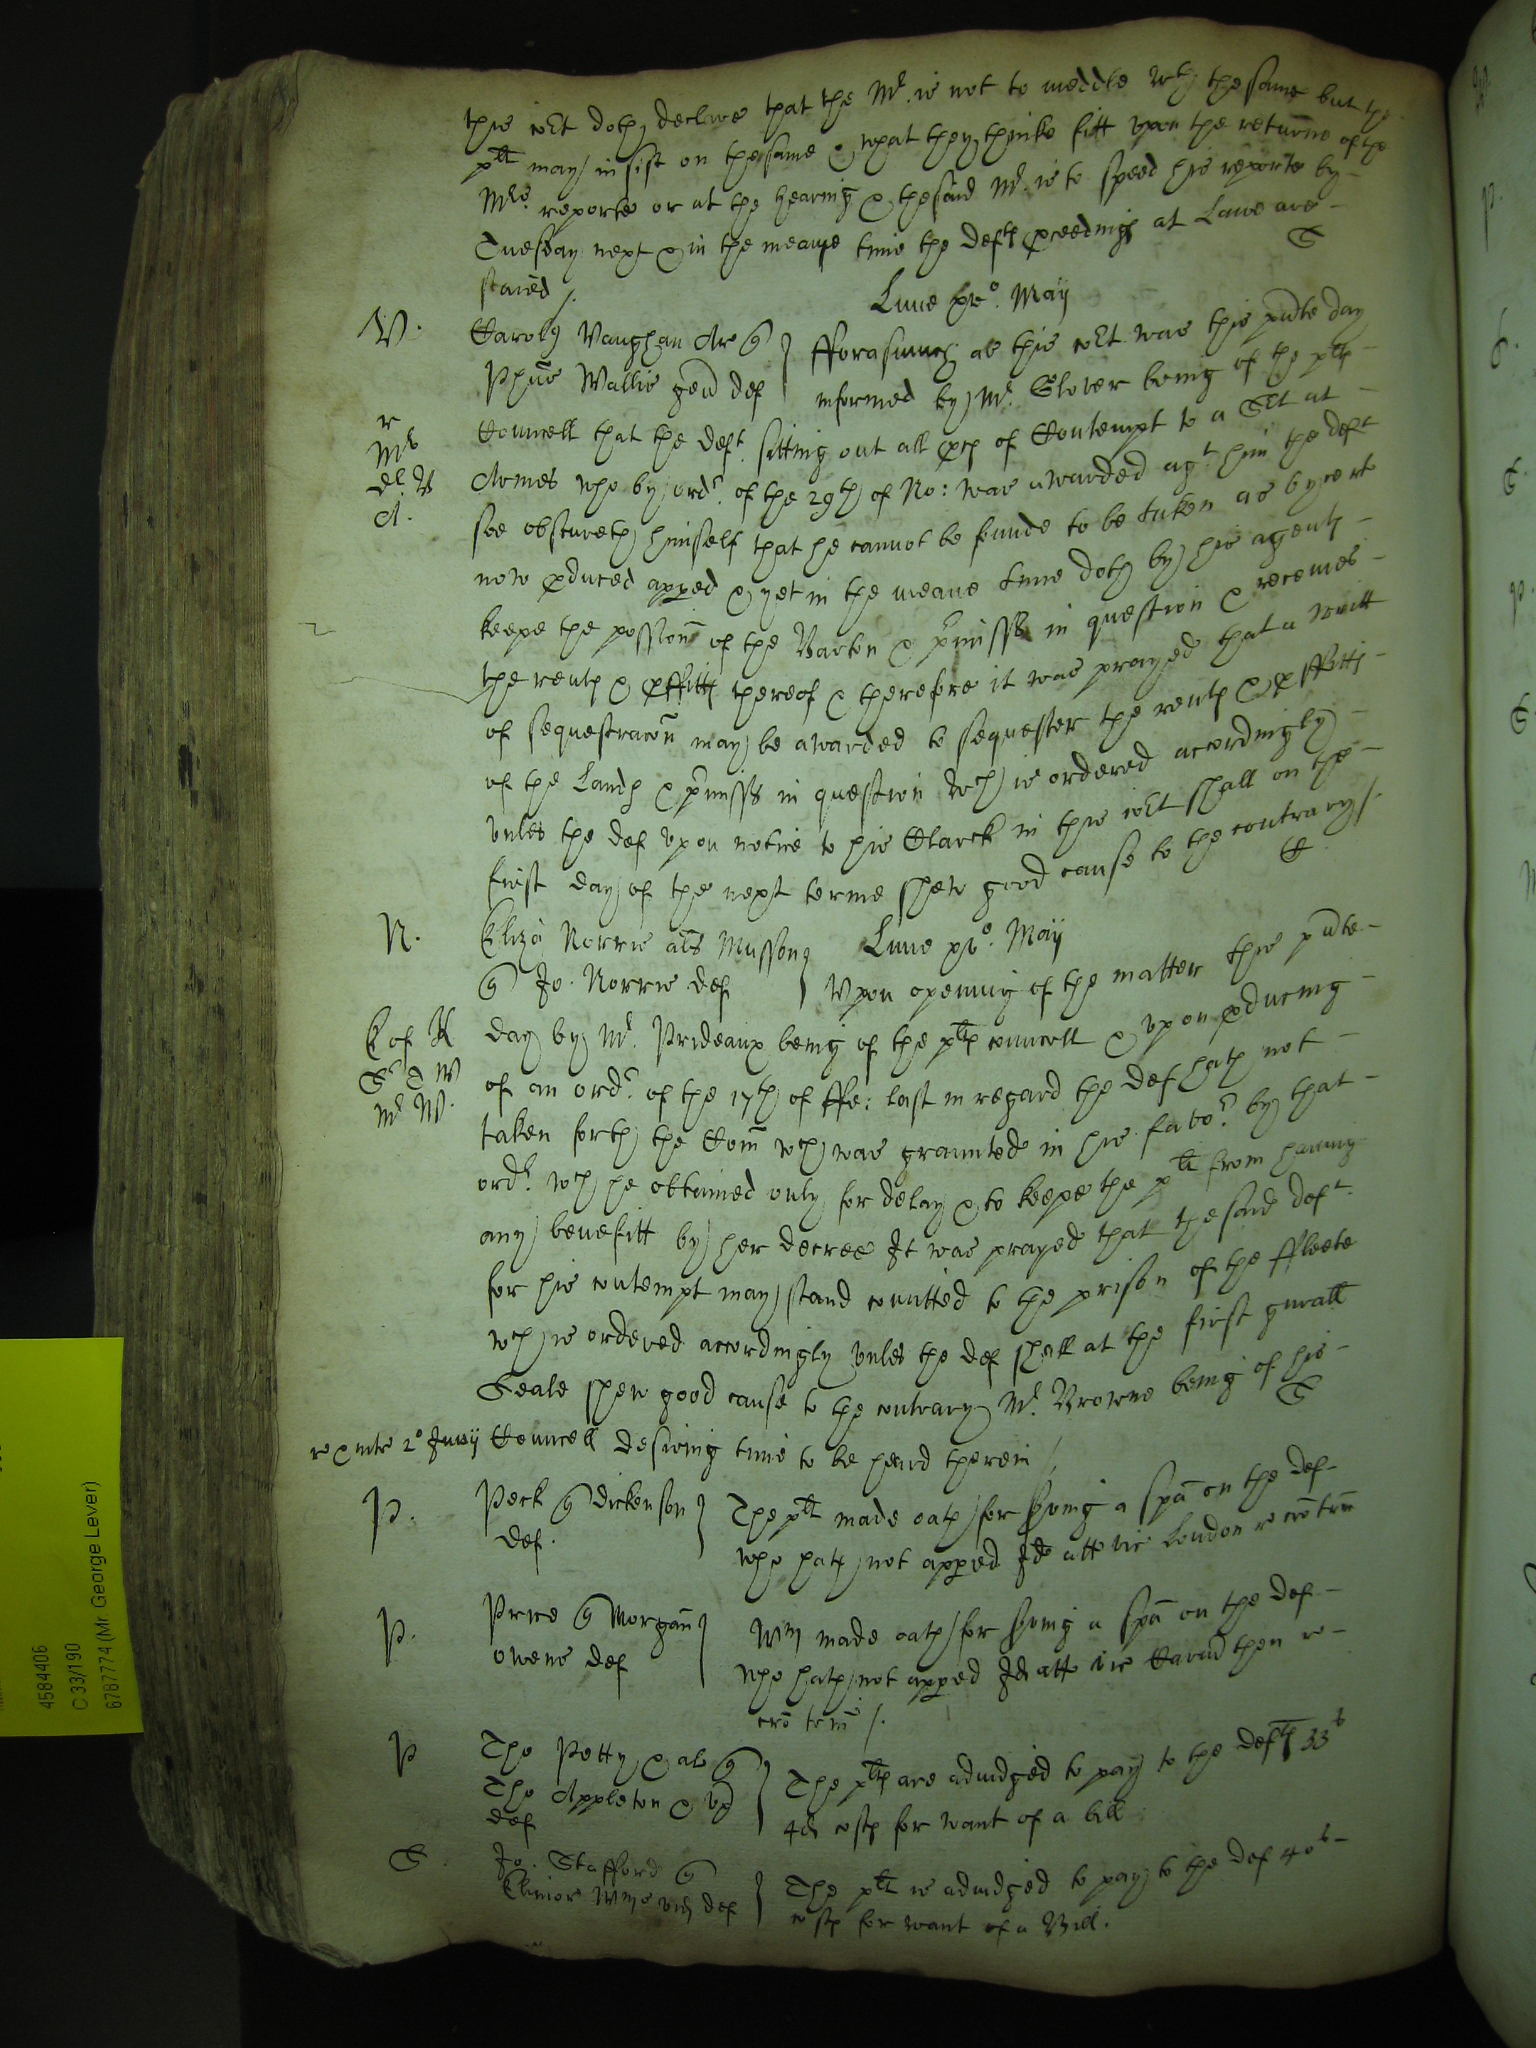 this cort doth declare that the Mr. is not to meddle wth the same but the
plt may insist on the same & what they thinke fitt upon the returne of the
Mrs. reporte or at the hearing & the said Mr. is to speed his reporte by
Tuesday next & in the meane time the defts pceedings at Lawe are
staied /.
S
Lune pro. Maij
V.
Carolus Vaughan Ar
Phus Wallis gen def
fforasmuch as this cort was this pnte day
informed by Mr. Glover being of the plts
r
Councell that the deft. sitting out all pces of Contempt to a Sert at
Armes who by ordr. of the 29th of No: was awarded agt him the deft
A.
soe obscureth himself that he cannot be founde to be taken as by cert
now pduced apped & yet in the meane time doth by his agents
keepe the possion of the Barton & pmisss in question & receives
the rents & pffitts thereof & therefore it was prayed that a writt
of sequestracon may be awarded to sequester the rents & pffitts
of the Lands & pmisss in question wch is ordered accordingly
unles the def upon notice to his Clarck in this cort shall on the
first day of the next terme shew good cause to the contrary /.
N.
Eliza Norris als Musson
Jo. Norris def
Lune pro. Maij
Upon opening of the matter this pnte
C of K
day by Mr. Prideaux being of the plts councell & upon pducing
of an ordr. of the 17th of ffe: last in regard the def hath not
Mr W.
taken forth the Com wch was graunted in his favor. by that
ordr. wch he obtained only for delay & to keepe the plt from having
any benefitt by her decree It was prayed that the said deft.
for his contempt may stand comitted to the prison of the ffleete
wch is ordered accordingly unles the def shall at the first gnall
Seale shew good cause to the contrary Mr. Browne being of his
2o Junij Councell desiring time to be heard therein /
S
P.
Peck Dickenson
def.
The plt made oath for sving a spa on the def
who hath not apped Ido atto vic London
P.
Price Morgan
Owens def
Wm made oath for sving a spa on the def
who hath not apped Ido atto vic then re
P
Tho Petty & al
Tho Appleton & ux
def
The plts are adiudged to pay to the defts 33s
4d costs for want of a bill
S.
Jo. Stafford
Elinor Wms vid def
The plt is adiudged to pay to the def 40s
costs for want of a Bill.
4584406
C 33/190
6787774 (Mr. George Lever)